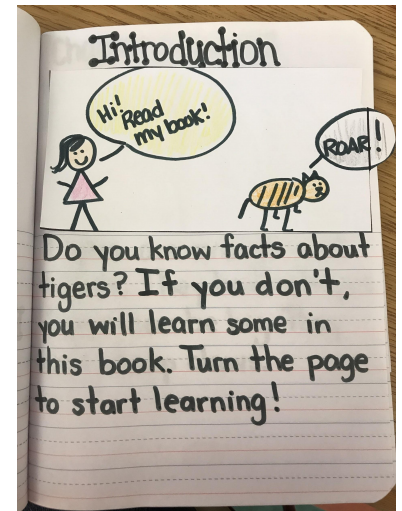 Introduction
Hi! Read
my book!
ROAR!
Do you know facts about
tigers? If you don't,
you will learn some in
this book. Turn the page
to start learning!